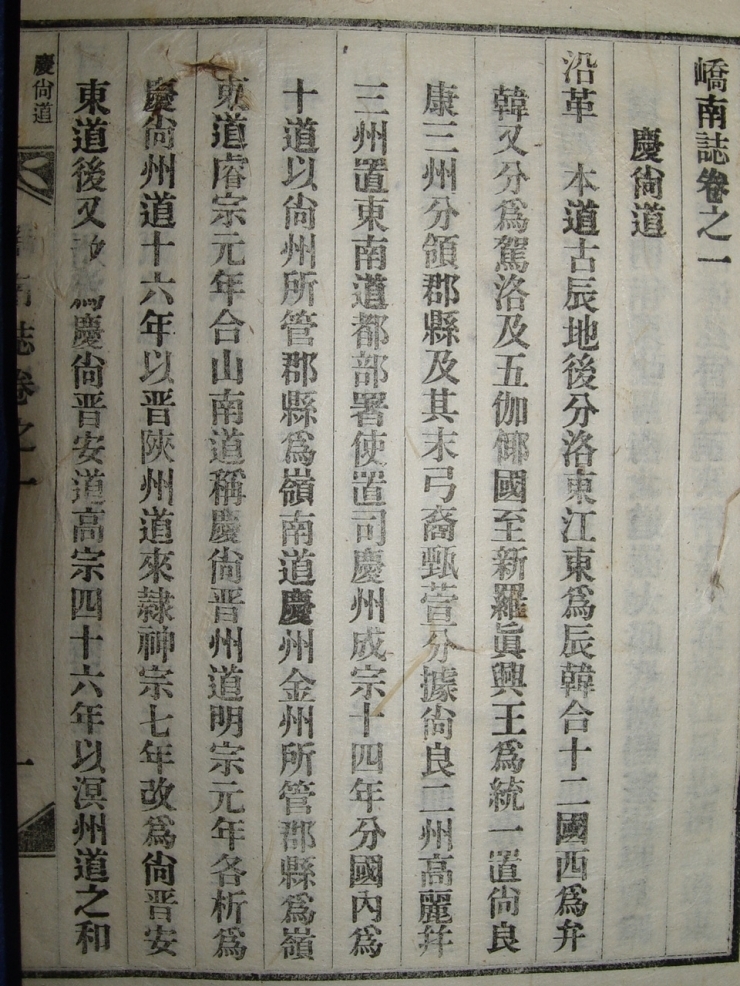 嶠南誌卷之一
慶尙道
沿革 本道古辰地後分洛東江東爲辰韓合十二國西爲弁
韓又分爲駕洛及五伽倻國至新羅眞興王爲統一置尙良
康三州分領郡縣及其末弓裔甄萱分據尙良二州高麗幷
三州置東南道都部署使置司慶州成宗十四年分國內爲
十道以尙州所管郡縣爲嶺南道慶州金州所管郡縣爲嶺
東道睿宗元年合山南道稱慶尙晋州道明宗元年各析爲
慶尙州道十六年以晋陝州道來隷神宗七年改爲尙晋安
東道後又改爲慶尙晋安道高宗四十六年以溟州道之和
慶尙道
嶠南誌卷之一
一